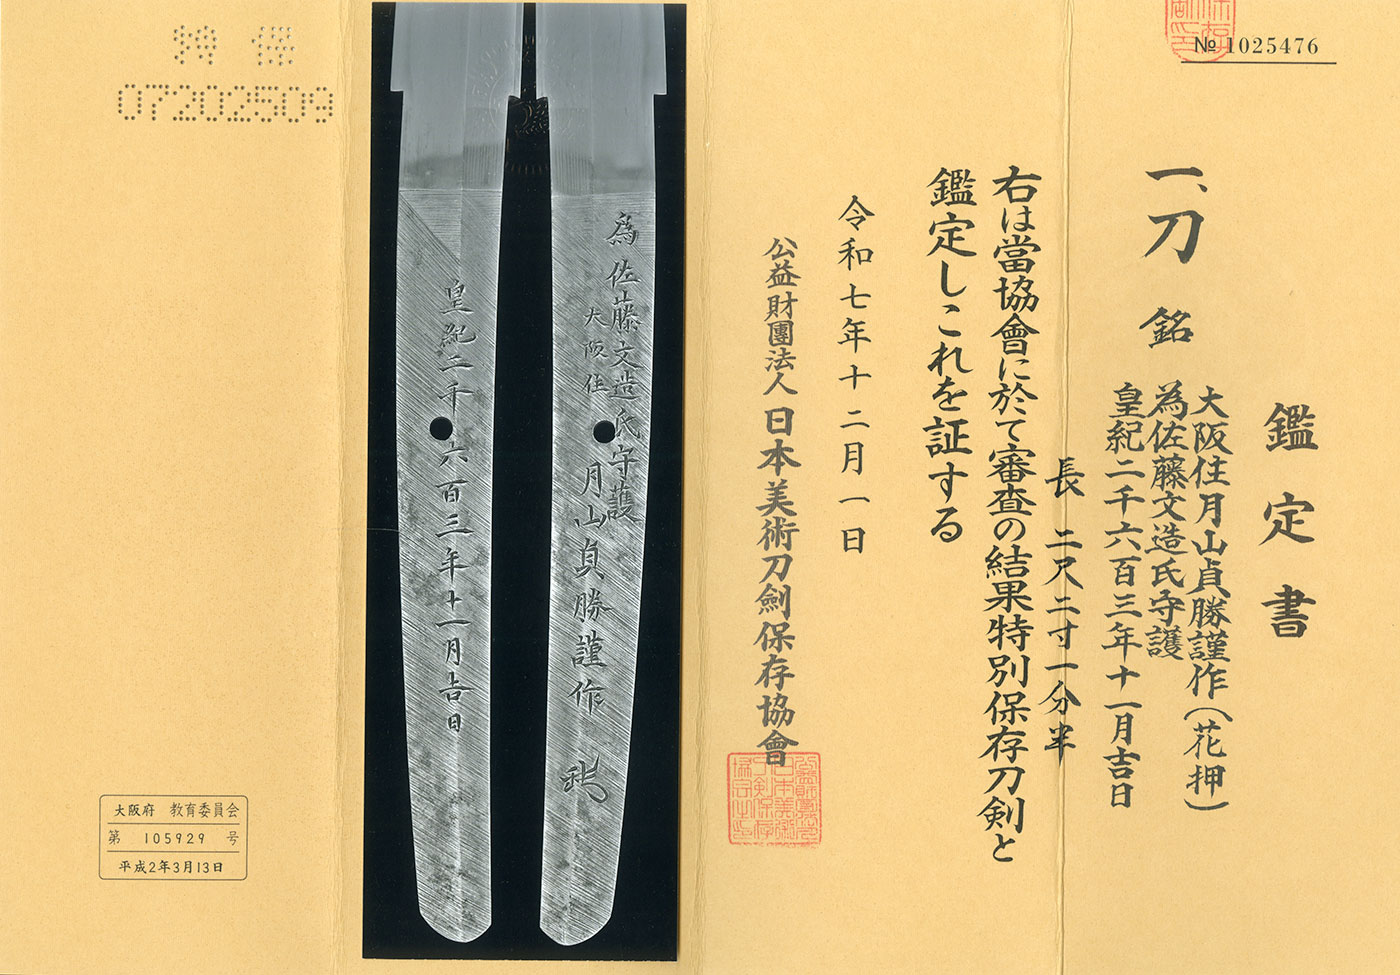 № 1025476
鑑定書
一、刀 銘
大阪住月山貞勝謹作(花押)
為佐藤文造氏守護
皇紀二千六百三年十一月吉日
長 二尺二寸一分半
右は當協會に於て審査の結果特別保存刀剣と
鑑定しこれを証する
令和七年十二月一日
公益財團法人日本美術刀劍保存協會
為佐藤文造氏守護
大阪住月山貞勝謹作
皇紀二千六百三年十一月吉日
特保
07202509
大阪府 教育委員会
第 105929 号
平成2年3月13日